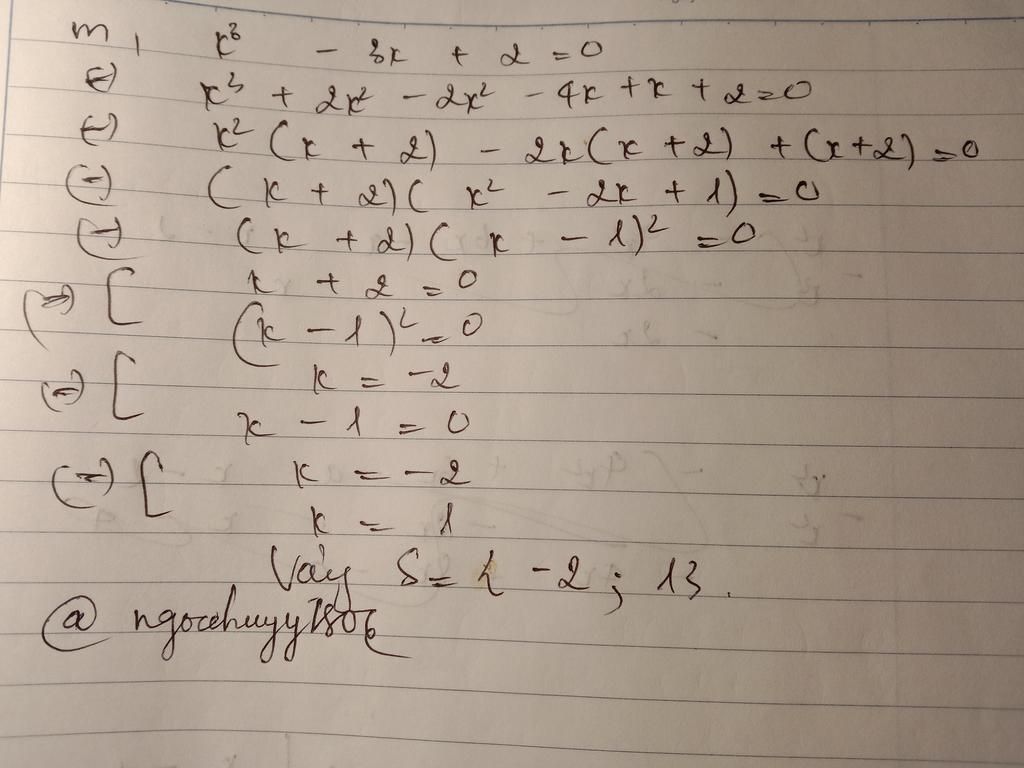 m, x³ - 3x + 2 = 0
⇔ x³ + 2x² - 2x² - 4x + x + 2 = 0
⇔ x² (x + 2) - 2x(x + 2) + (x + 2) = 0
⇔ (x + 2)(x² - 2x + 1) = 0
⇔ (x + 2)(x - 1)² = 0
⇔ [ x + 2 = 0
(x - 1)² = 0
⇔ [ x = -2
x - 1 = 0
⇔ [ x = -2
x = 1
Vậy S = { -2 ; 1}.
@ ngocchuyy1806